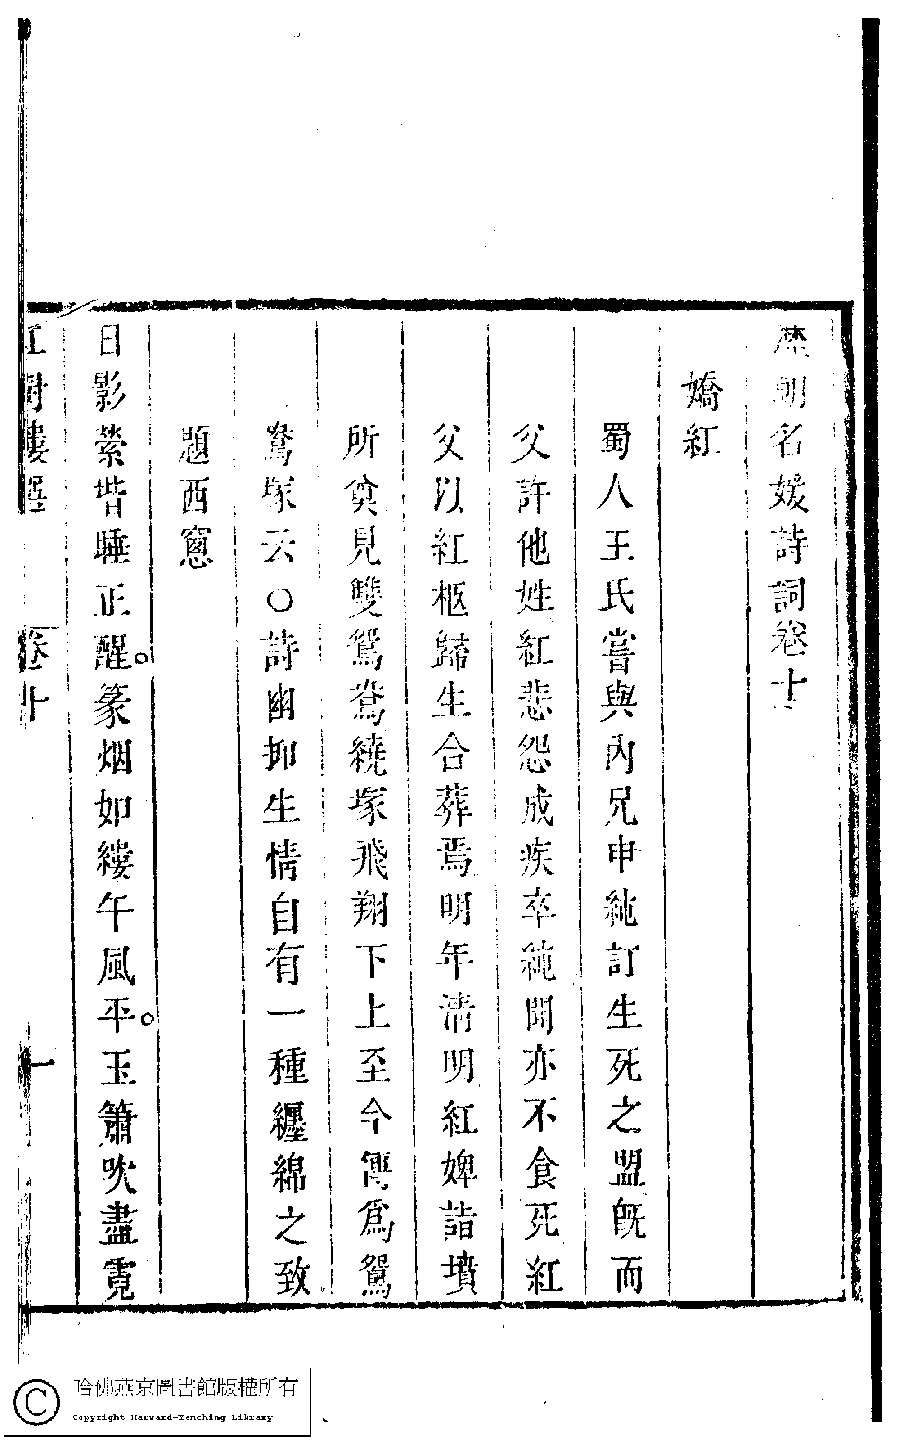 歷朝名媛詩詞卷十
嬌紅
蜀人王氏嘗與內兄申純訂生死之盟旣而
父許他姓紅悲怨成疾卒純聞亦不食死紅
父以紅柩歸生合葬焉明年清明紅婢詣墳
所奠見雙鴛鴦繞塚飛翔下上至今傳爲鴛
鴦塚云○詩幽抑生情自有一種纏綿之致
題西窻
日影縈堦睡正醒。篆烟如縷午風平。玉簫吹盡霓
紅樹樓選 卷十 一
哈佛燕京圖書館版權所有
Copyright Harvard-Yenching Library